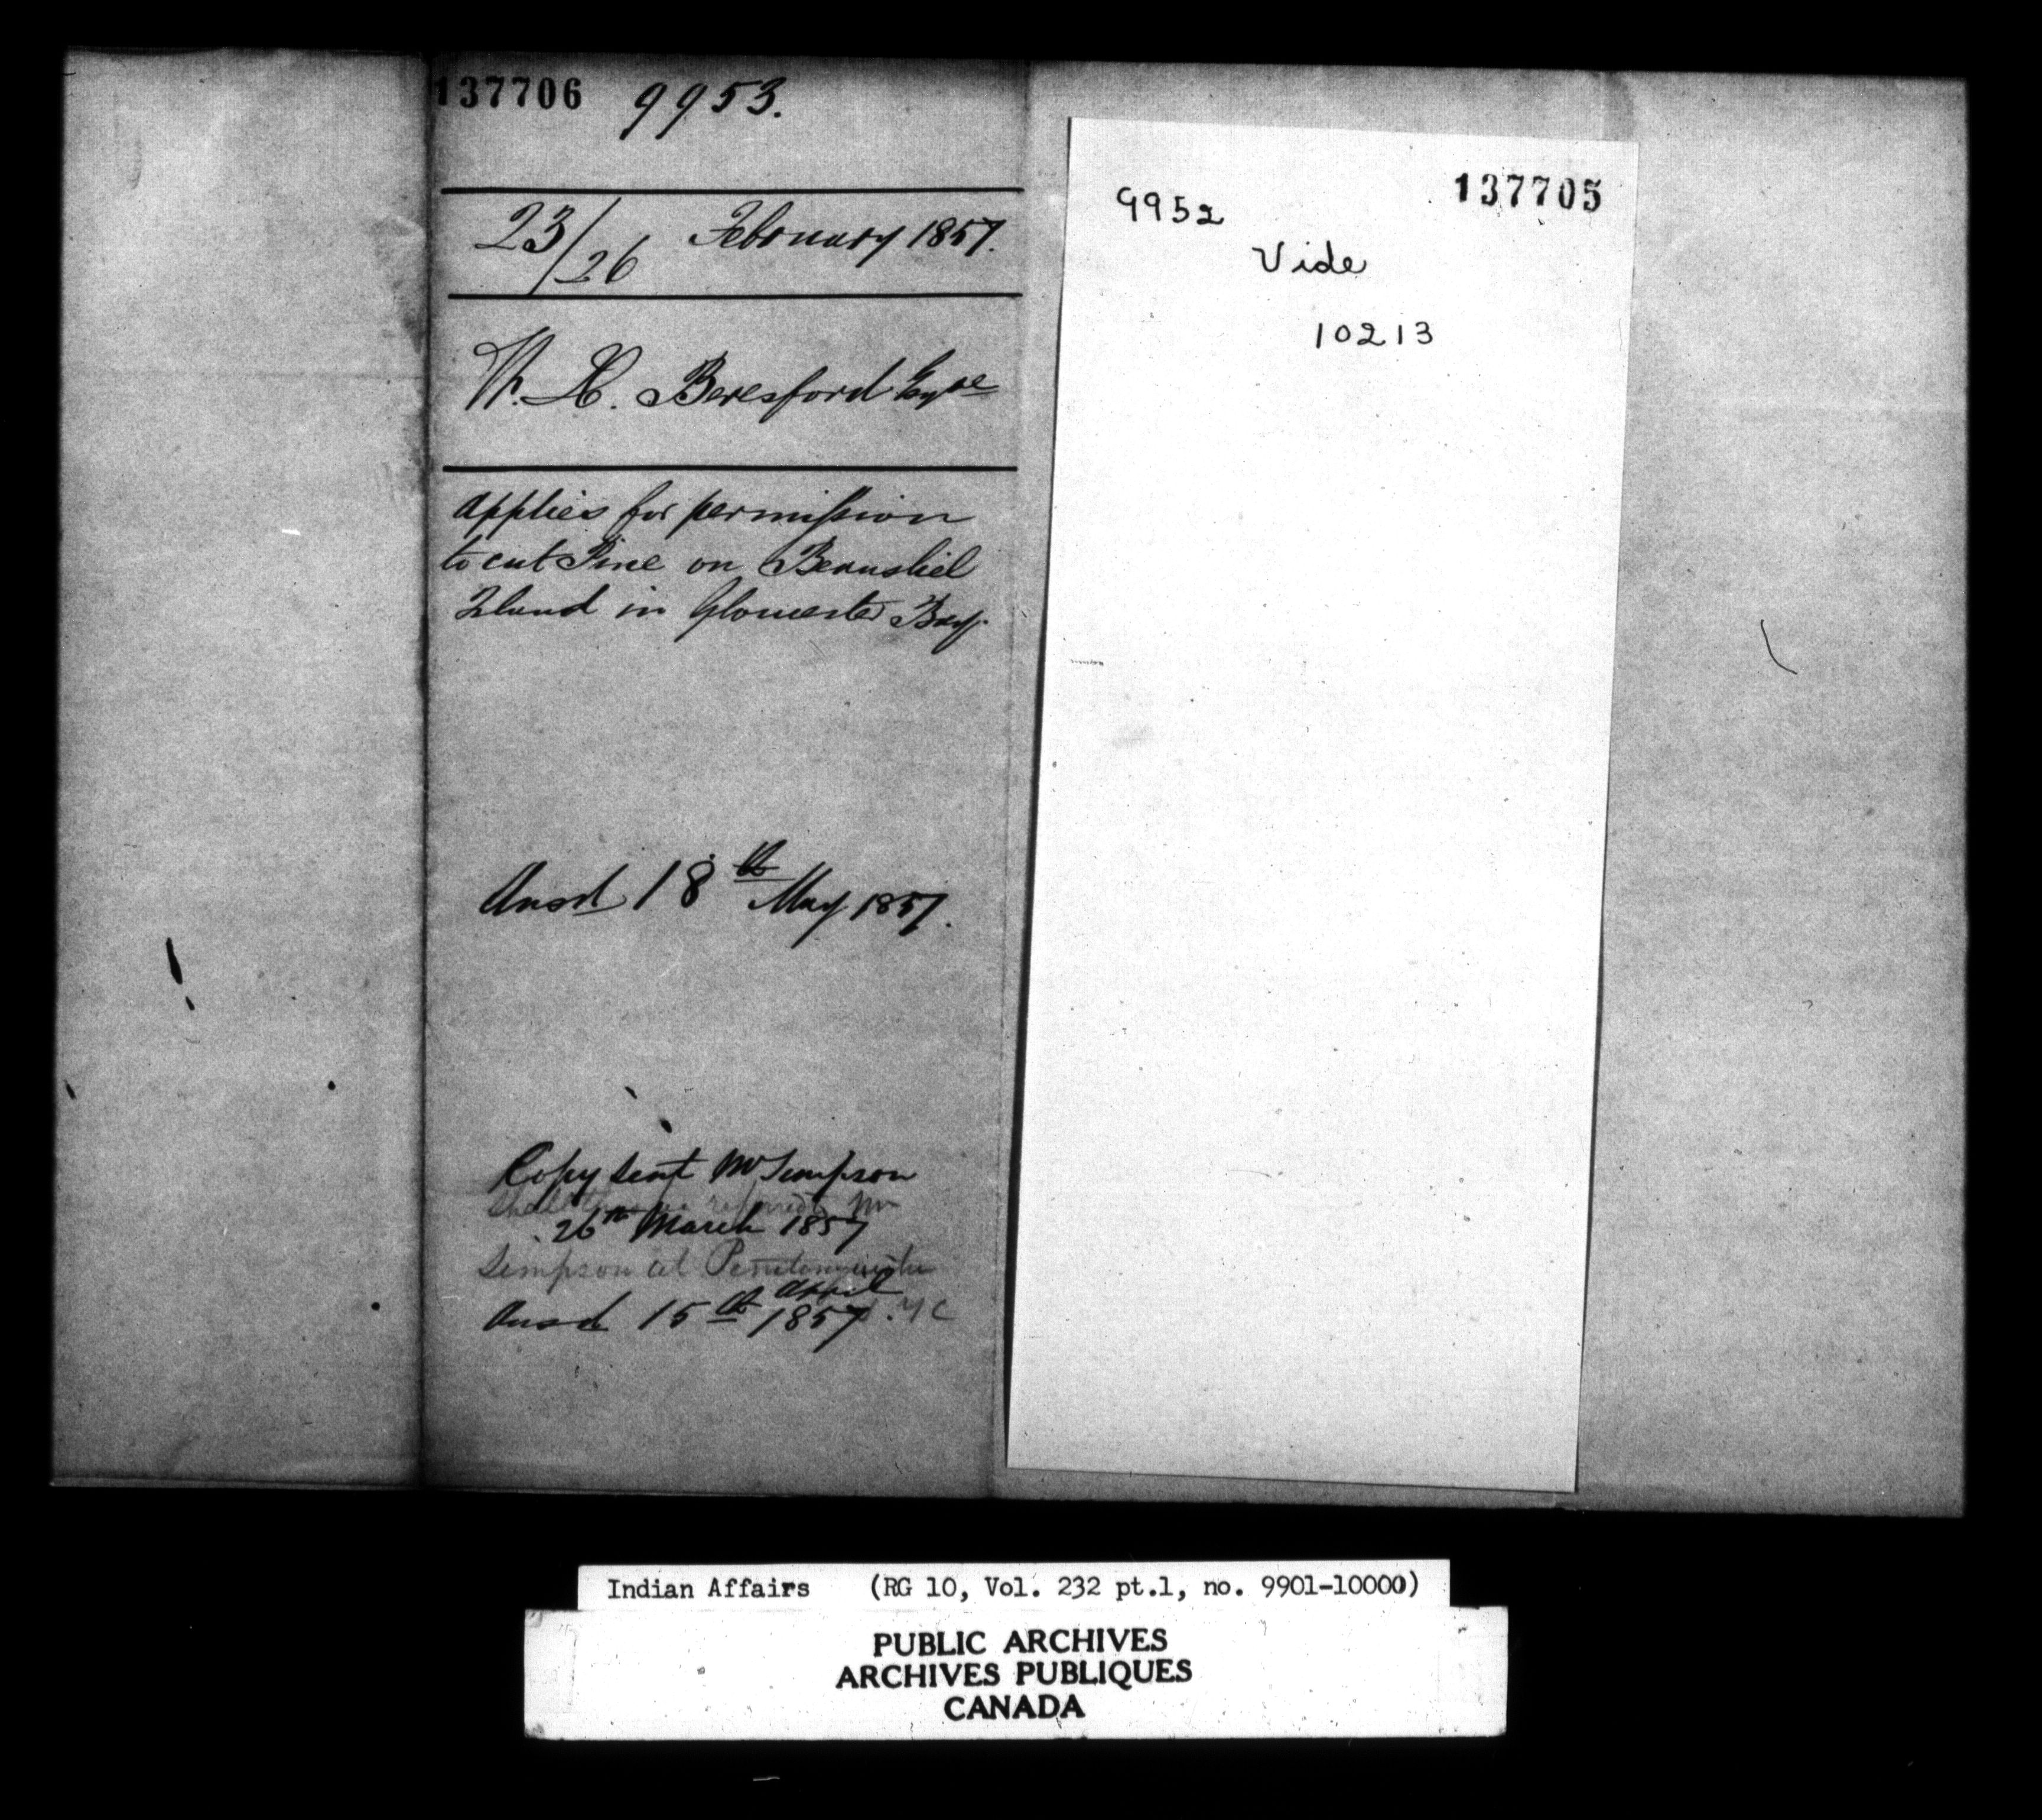 137706 9953.
23/26 February 1857.
W. H. Beresford Esqre
applies for permission
to cut Pine on Beausliel
Island in Gloucester Bay
Ansd 18th May 1857.
Copy sent Mr Simpson
referred Mr
26th March 1857
Simpson at
Ansd 15th April 1857
137705
9952
Vide
10213
Indian Affairs (RG 10, Vol. 232 pt.1, no. 9901-10000)
PUBLIC ARCHIVES
ARCHIVES PUBLIQUES
CANADA